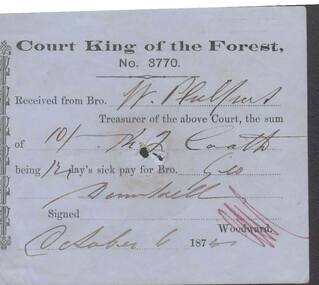 Court King of the Forest,
No. 3770.
Received from Bro. W. Philpus
Treasurer of the above Court, the sum
of 10/-
being 12 day's sick pay for Bro. Geo
Signed
Woodward.
October 6 187